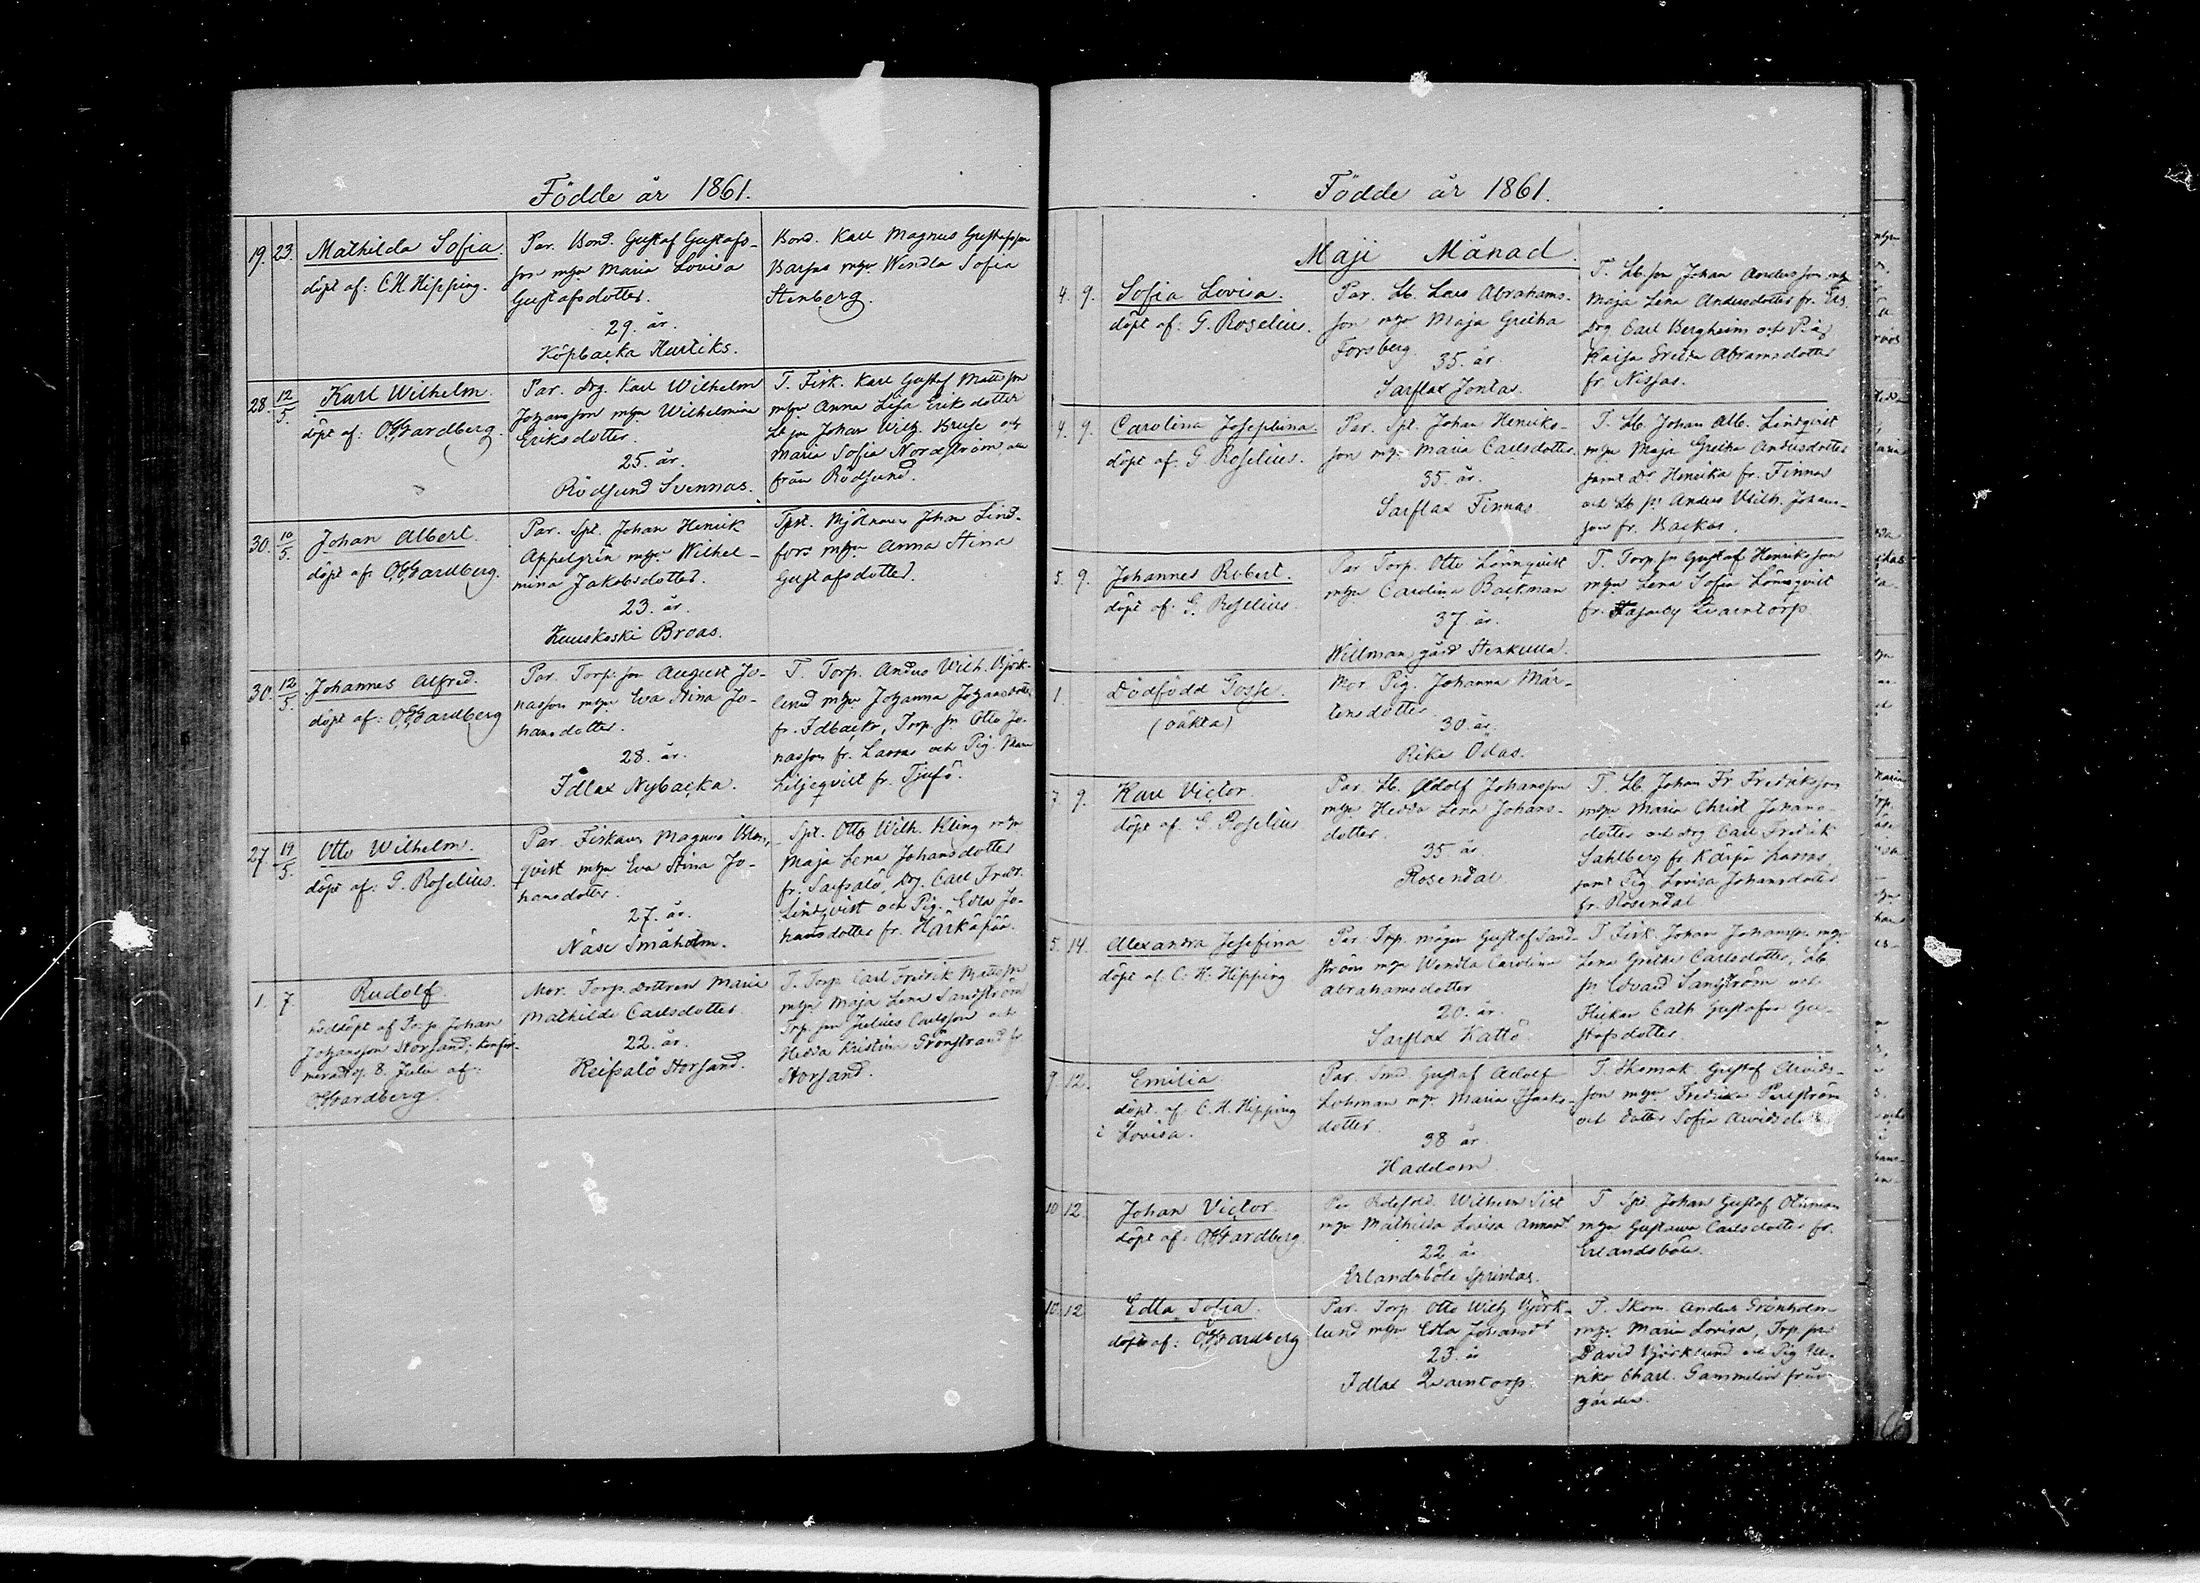 Födde år 1861.
19. 23. Mathilda Sofia.
döpt af: C. H. Hipping.
Par. Bond. Gustaf Gustafs-
son m hu Maria Lovisa
Gustafsdotter.
29. år.
Köpbacka Hartiks.
Bond. Karl Magnus Gustafsson
Barsas m hu Wendla Sofia
Stenberg.
28. 12/5. Karl Wilhelm.
döpt af: O. G. Gardberg.
Par. Drg. Karl Wilhelm
Johansson m hu Wilhelmina
Eriksdotter.
25. år.
Rödsund Svennas.
T. Fisk. Karl Gustaf Mattsson
m hu Anna Lisa Eriksdotter
Lb sn Johan Wilh. Bruse och
Maria Sofia Nordström, alla
från Rödsund.
30. 10/5. Johan Albert.
döpt af: O. G. Gardberg.
Par. Spt. Johan Henrik
Appelgrén m hu Wilhel-
mina Jakobsdotter.
23. år.
Kuuskoski Broas.
Mjölnaren Johan Lind-
fors m hu Anna Stina
Gustafsdotter.
30. 12/5. Johannes Alfred.
döpt af: O. G. Gardberg
Par. Torp. sn August Jo-
nasson m hu Eva Stina Jo-
hansdotter.
28. år.
Idlax Nybacka.
T. Torp. Anders Wilh. Björk-
lund m hu Johanna Johansdotter
fr. Idbacka, Torp. sn Otto Jo-
nasson fr. Lassas och Pig.
Liljeqvist fr. Tjusö.
27. 19/5. Otto Wilhelm.
döpt af: G. Roselius.
Par. Fiskaren Magnus Blom-
qvist m hu Eva Stina Jo-
hansdotter.
27. år.
Näse Småholm.
Spt. Otto Wilh. Kling m hu
Maja Lena Johansdotter
fr. Sarfsalö, Drg. Carl Fredr.
Lindqvist och Pig. Edla Jo-
hansdotter fr. Härkäpää.
1. 7. Rudolf.
nöddöpt af Torp. Johan
Johansson Storsand; konfir-
merad d. 8. Julii af:
O. G. Gardberg.
Mor. Torp. dottren Maria
Mathilda Carlsdotter.
22. år.
Keipsalö Storsand.
T. Torp. Carl Fredrik Mattsson
m hu Maja Lena Sandström
Trp. son Julius Carlsson och
Hedda Kristina Grönstrand fr.
Storsand.
Födde år 1861.
Maji Månad.
4. 9. Sofia Lovisa.
döpt af: G. Roselius.
Par. Lb. Lars Abrahams-
son m hu Maja Gretha
Forsberg.
35. år.
Sarflax Jontas.
T. Lb. sn Johan Andersson m hu
Maja Lena Andersdotter fr.
Drg. Carl Bergheim och Pig.
Kaisa Greta Abramsdotter
fr. Nissas.
4. 9. Carolina Josephina.
döpt af: G. Roselius.
Par. Spt. Johan Henriks-
son m hu Maria Carlsdotter.
35. år.
Sarflax Finnas
T. Lb. Johan Alb. Lindqvist
m hu Maja Gretha Andersdotter
samt Dr. Henrika fr. Finnas
och Lb sn Anders Wilh. Johans-
son fr. Backas.
5. 9. Johannes Robert.
döpt af: G. Roselius.
Par Torp. Otto Lönnqvist
m hu Carolina Backman
37. år.
Willmansgård Stenkulla.
T. Torp sn Gustaf Henriksson
m hu Lena Sofia Lönnqvist
fr. Qvarntorp
1. Dödfödd Gosse.
(oäkta)
Mor Pig. Johanna Mår-
tensdotter
30. år
Rike Odas.
7. 9. Karl Victor.
döpt af: G. Roselius
Par. Lb. Adolf Johansson
m hu Hedda Lena Johans-
dotter.
35 år
Rosendal
T. Lb Johan Fr. Fredriksson
m hu Maria Christ. Johans-
dotter och drg Carl Fredrik
Sahlberg fr Kärpä Lassas,
samt Pig. Lovisa Johansdotter
fr. Rosendal
5. 14. Alexandra Josefina
döpt af C. H. Hipping
Par. Trp. mågen Gustaf Sand-
ström m hu Wendla Carolina
Abrahamsdotter
20. år.
Sarflax Kattö.
T. Fisk. Johan Johansson m hu
Lena Gretha Carlsdotter, Lb.
sn Edvard Sandström och
Flickan Cath. Gustafva Gu-
stafsdotter.
9. 12. Emilia
döpt. af C. H. Hipping
i Lovisa.
Par. Smed. Gustaf Adolf
Lohman m hu Maria Isaks-
dotter.
38 år.
Haddom
T. Skomak. Gustaf Arvids-
son m hu Fredrika Perlström
och dotter Sofia Arvidsdotter
10 12. Johan Victor
döpt af: O. G. Gardberg.
Par Rotesold. Wilhelm Sist
m hu Mathilda Lovisa
22 år
Erlandsböle Sprintas.
T Spt. Johan Gustaf Öhman
m hu Gustava Carlsdotter fr.
Erlandsböle.
10. 12 Edla Sofia.
döpt af: O. G. Gardberg
Par. Torp. Otto Wilh Björk-
lund m hu Edla Johansdr
23. år
Idlax Qvarntorp.
T. Skom. Anders Grönholm
m hu Maria Lovisa, Trp sn
David Björklund och Pig Ul-
rika Charl. Gammelin från
gården.